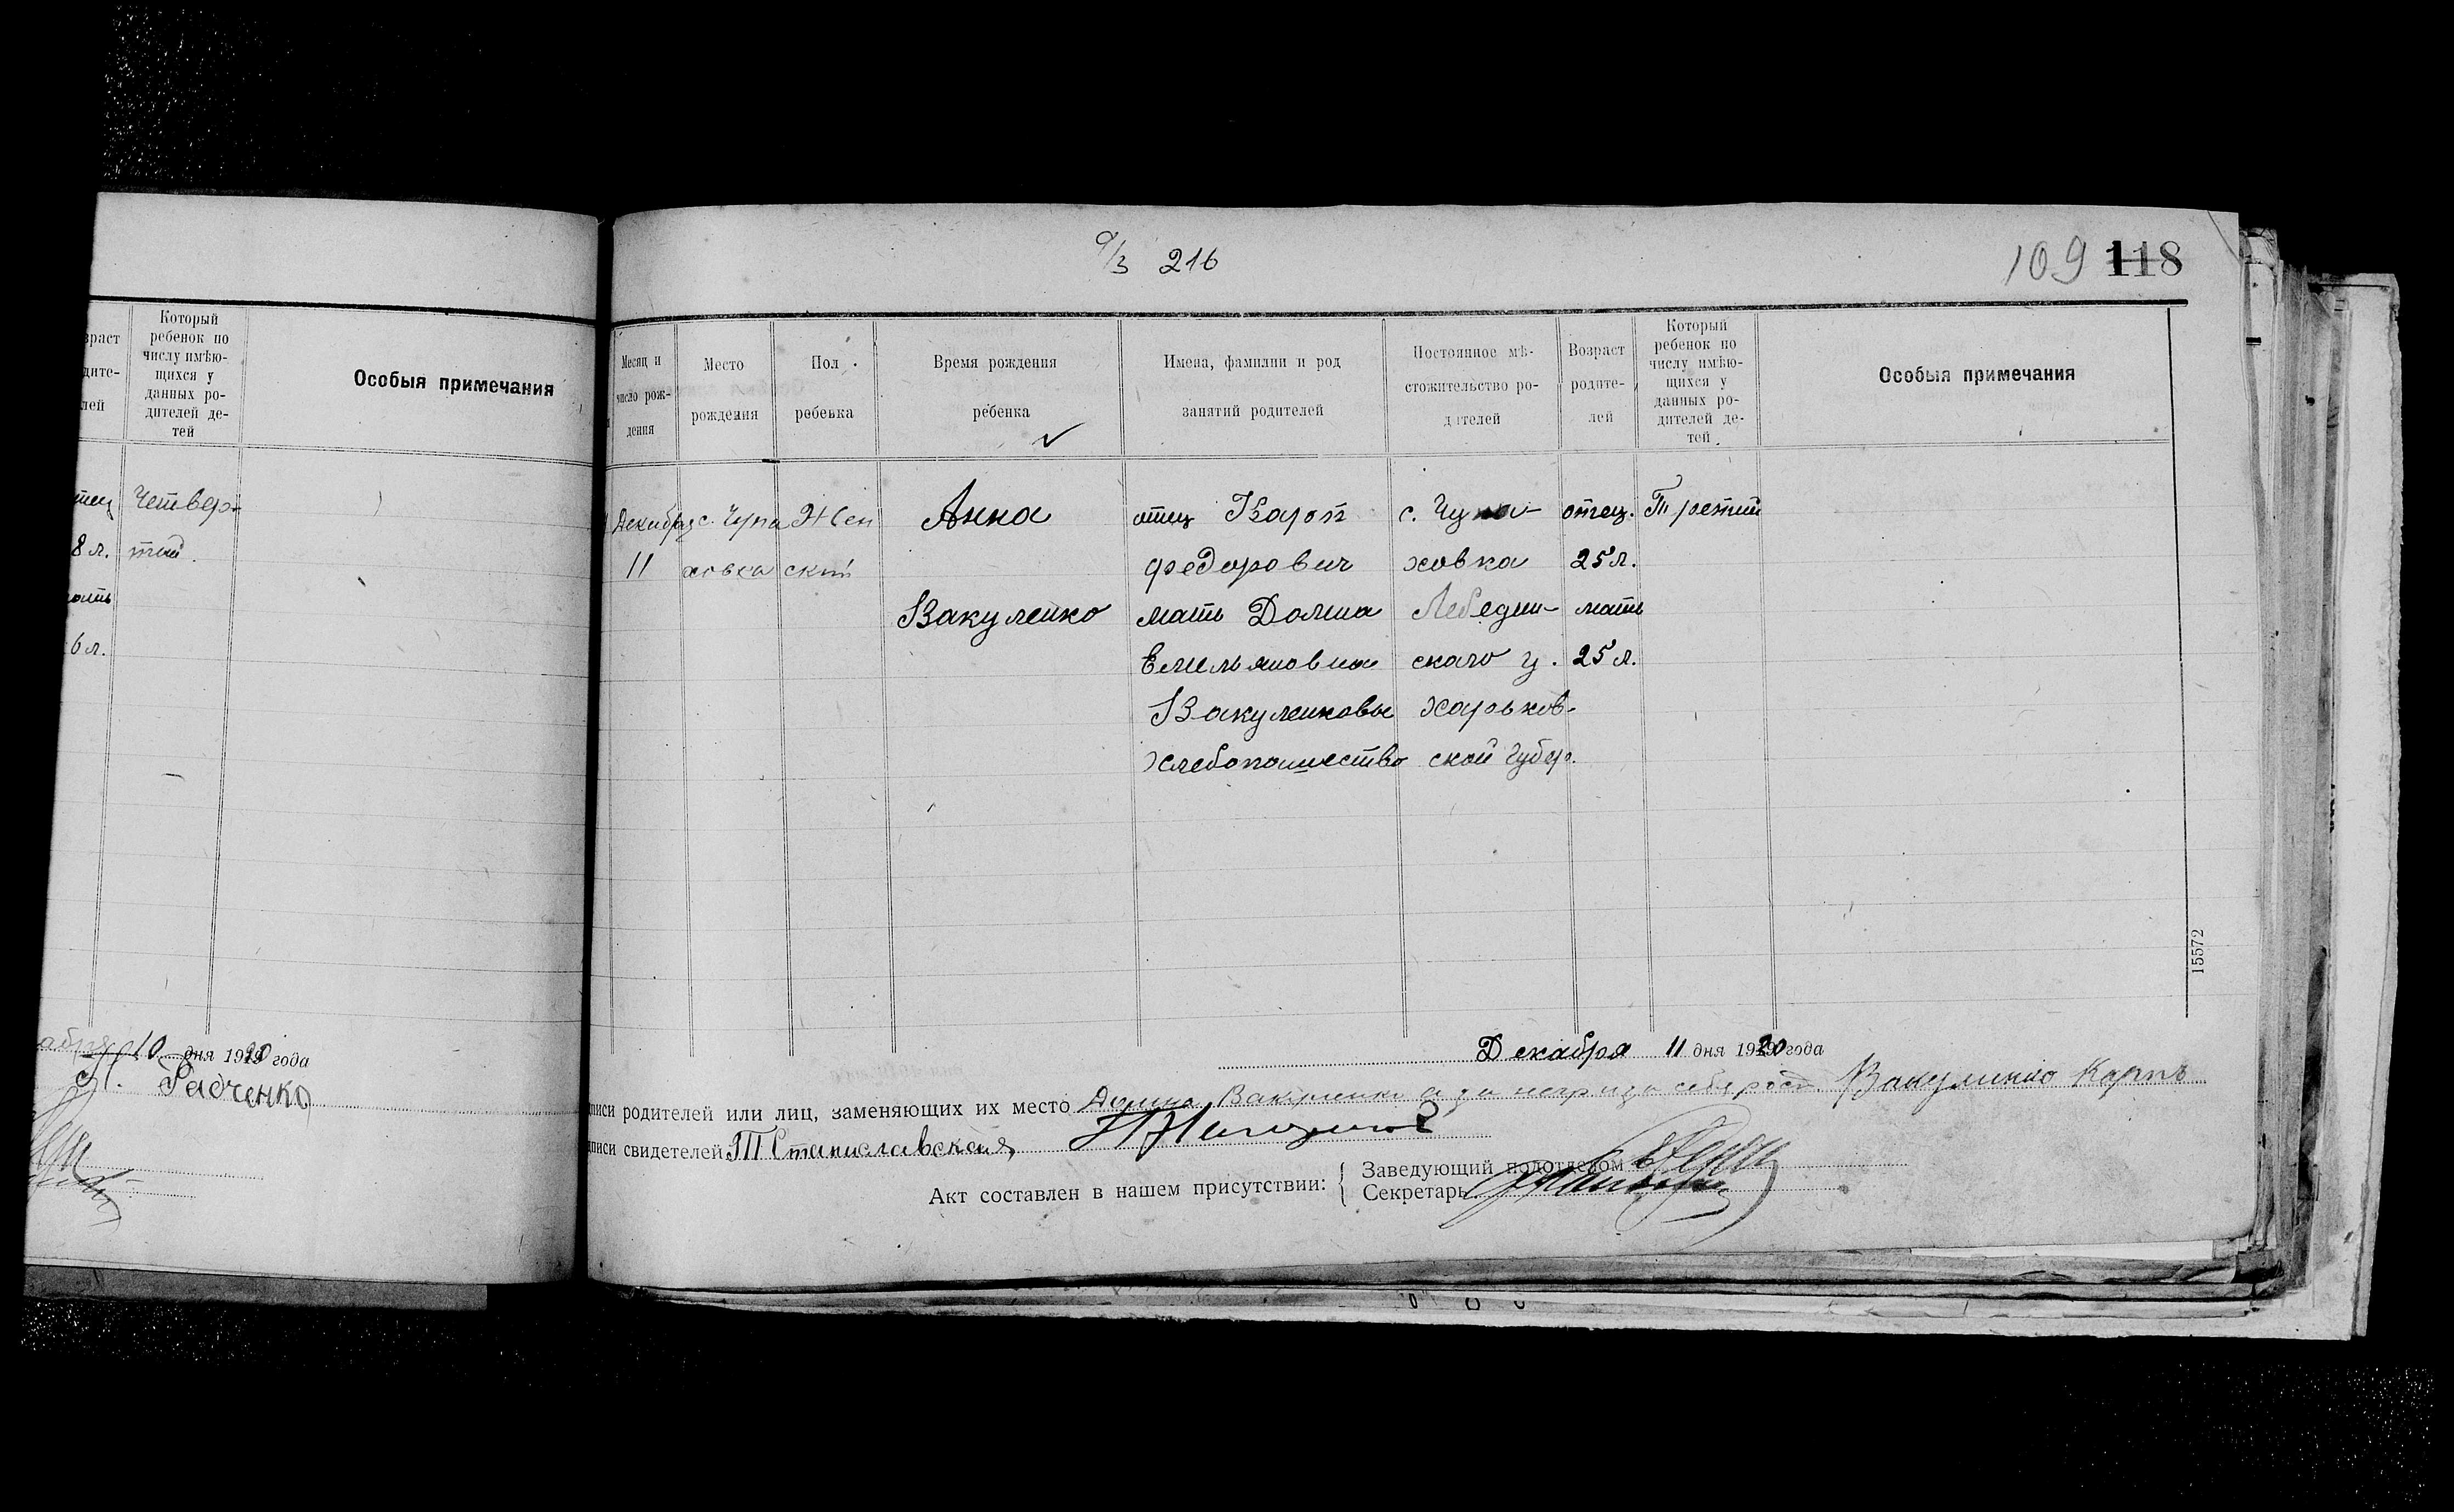 а/з 216
109 118
зраст
дите-
лей
Который
ребенок по
числу имѣю-
щихся у
данных ро-
дителей де-
тей
Особыя примечания
тец
8 л.
мать
6 л.
Четвер-
тый
абря 10 дня 1920 года
Радченко
Месяц и
число рож-
дения
Место
рождения
Пол
ребенка
Время рождения
ребенка
Имена, фамилии и род
занятий родителей
Постоянное мѣ-
стожительство ро-
дителей
Возраст
родите-
лей
Который
ребенок по
числу имѣю-
щихся у
данных ро-
дителей де-
тей
Особыя примечания
Декабря
11
с. Чупа
ховка
Жен
ский
Анна
Вакуленко
отец Карп
Федорович
мать Домна
Емельяновна
Вакуленковы
Хлебопашество
с. Чупа-
ховка
Лебедин-
скаго у.
Харьков-
ской Губер.
отец.
25 л.
мать
25 л.
Третий
15572
Декабря 11 дня 1920 года
писи родителей или лиц, заменяющих их место Домна Вакуленко а за неграм себя расп. Вакуленко Карпъ
писи свидетелей Т Станиславская
Акт составлен в нашем присутствии:
Заведующий подотделом
Секретарь